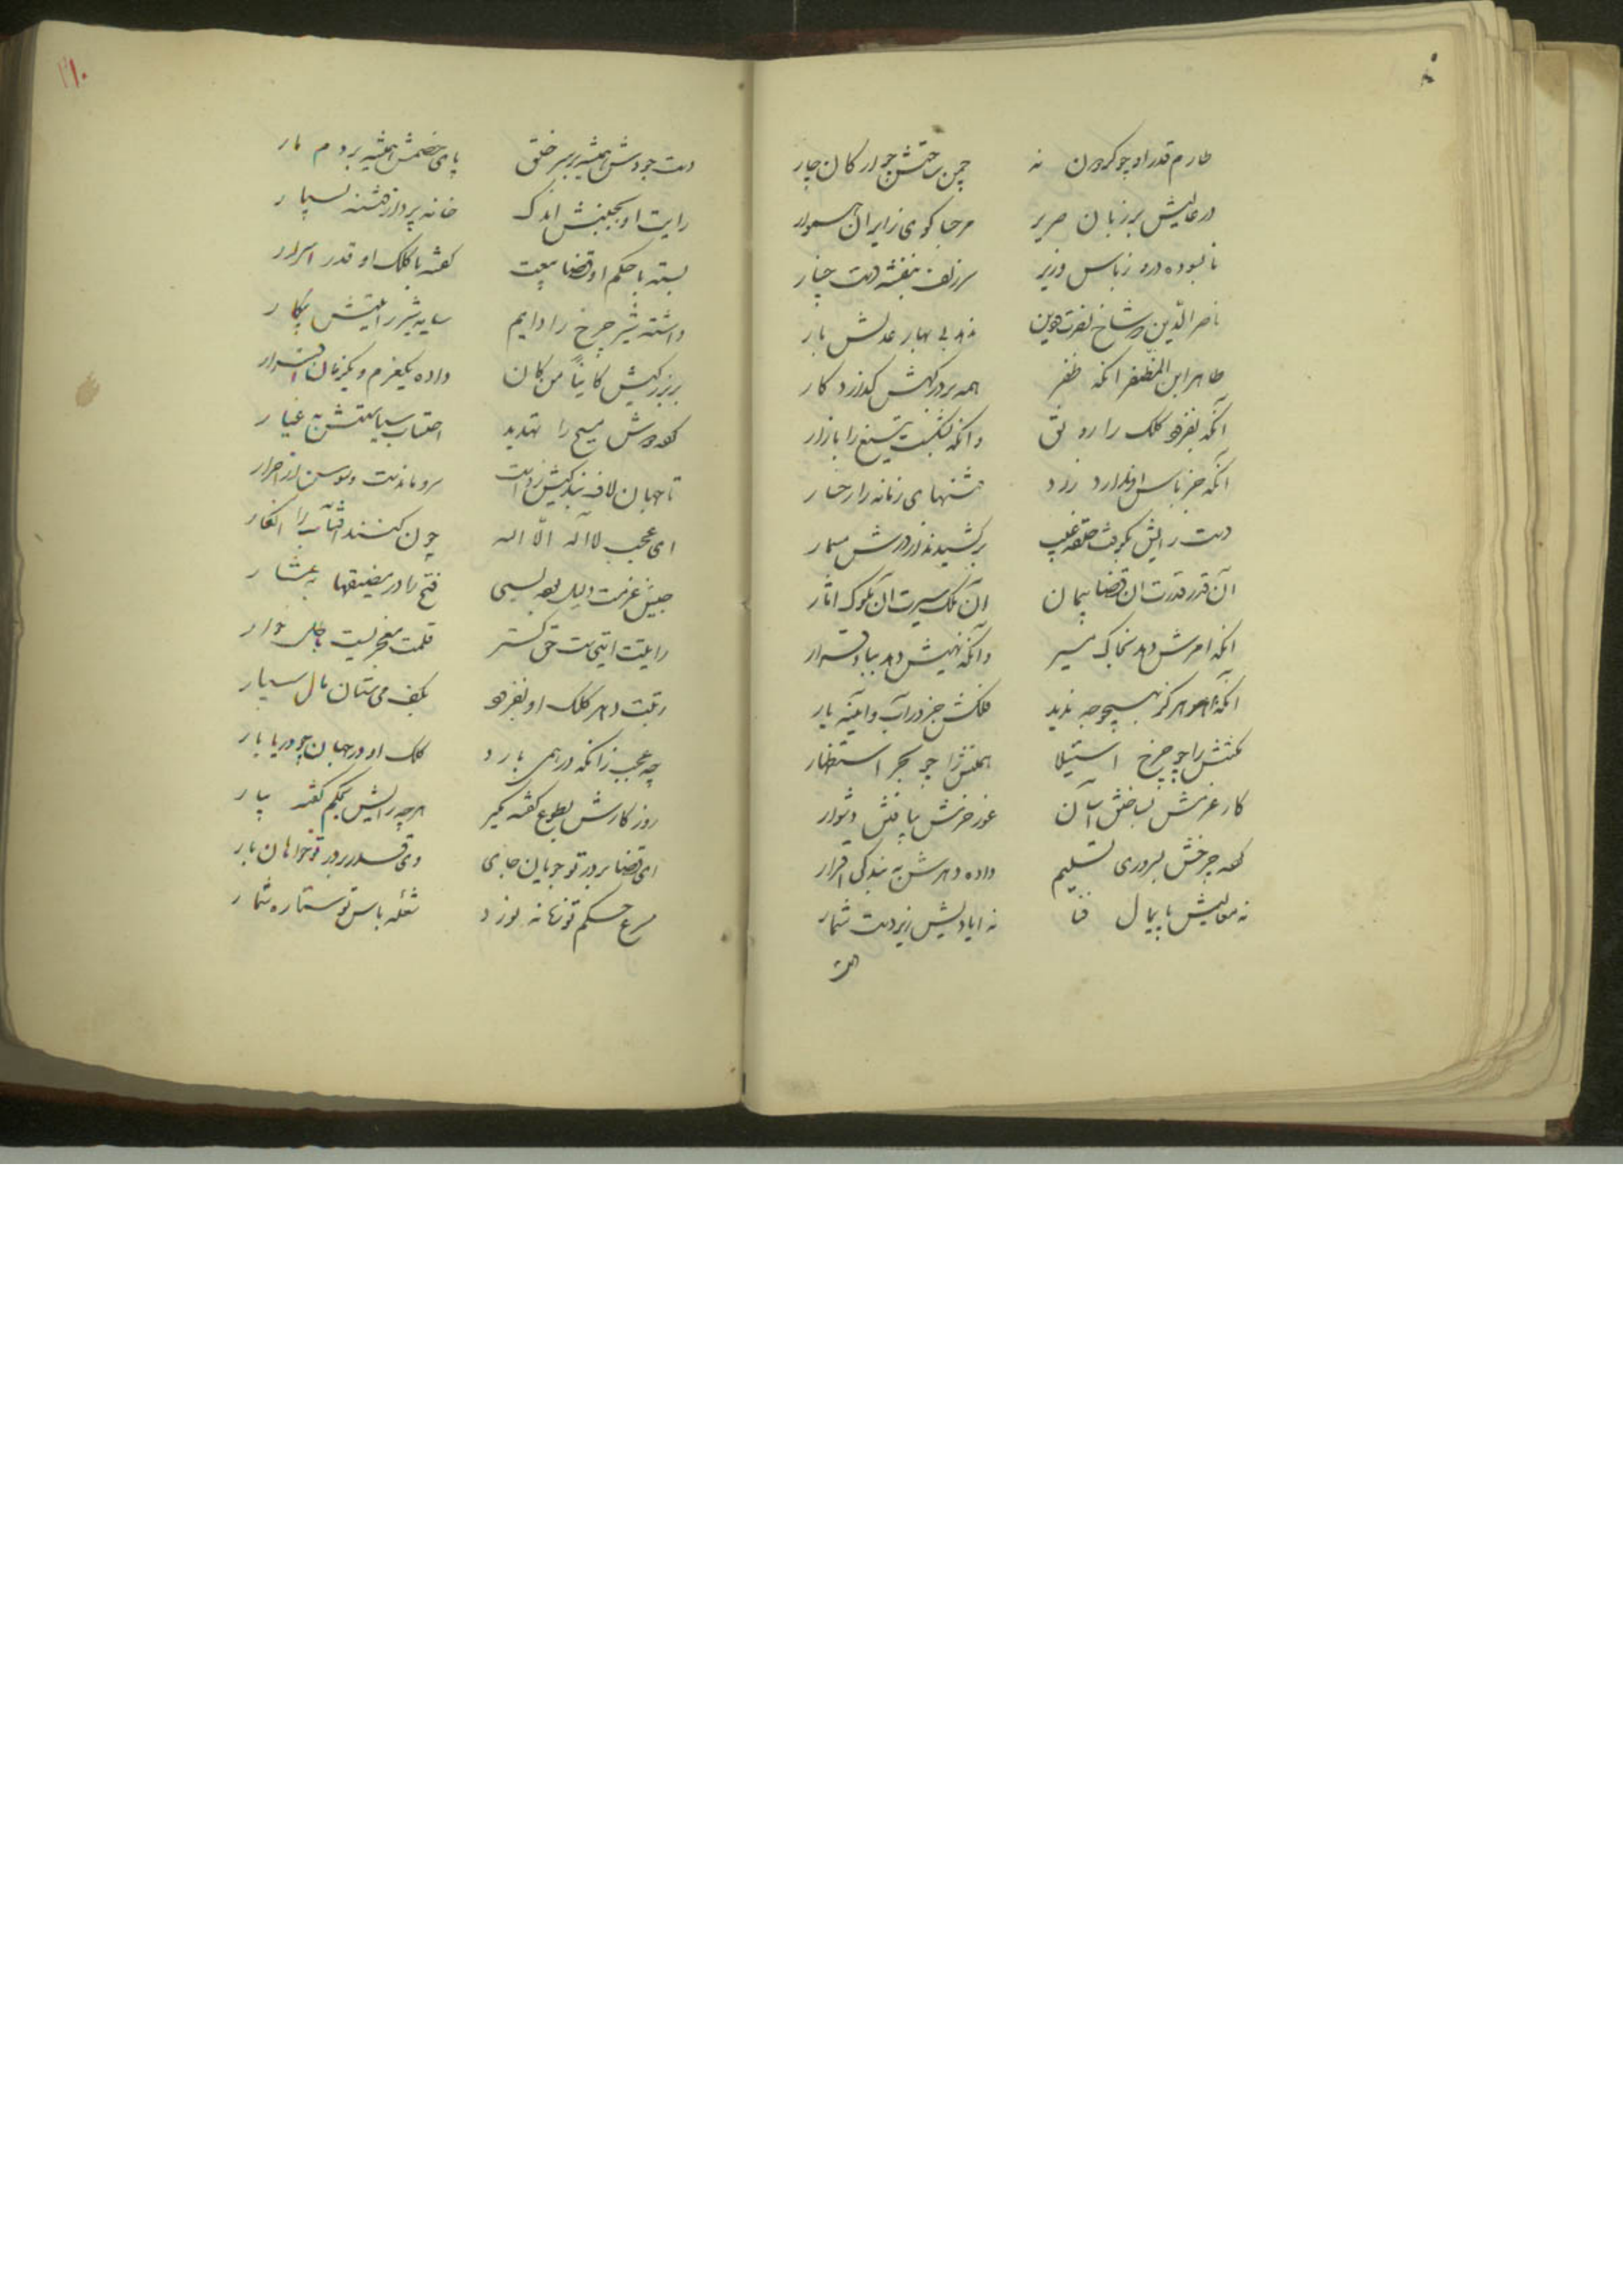 طارم قدر او چو گردون نه چمن ساحتش چو ارکان چار
در عالیش بر زبان صریر مرحبا گوی زایران هموار
نابسوده درو ز باس وزیر سر زلف بنفشه دست چنار
ناصر الدین که شاخ نصرت و دین ندهد بی بهار عدلش بار
طاهر ابن المظفر انکه ظفر همه بر درگهش گذارد کار
آنکه بفزود کلک را رونق وانکه بشکست تیغ را بازار
آنکه جز باس او ندارد زرد فتنهای زمانه را رخسار
دست رایش بکوفت حلقه غیب برکشیدند از درش مسمار
آن قدر قدرت ان قضا پیمان آن ملک سیرت آن ملوک اثار
انکه امرش دهد بخاک مسیر وانکه نهیش دهد بباد قرار
انکه هرگز بهیچوجه ندید فلکش جز در آب و اینه یار
همتش را چو چرخ استیلا همتش را چو بحر استظهار
کار عزمش بساختن آسان غور حزمش بیافتن دشوار
کرده چرخش بسروری تسلیم داده دهرش به بندگی اقرار
نه معالیش پایمال فنا نه ایادیش زیر دست شمار
دست
۲۱۰
دست جودش همیشه بر سر خلق پای خصمش همیشه بر دم مار
رایت او بجنبش اندک خانه پرداز فتنه بسیار
بسته با حکم او قضا بیعت گفته با کلک او قدر اسرار
داشته شیر چرخ را دایم سایه شیر رایتش پیکار
بر بزرگیش کاینا من کان داده یکعزم و یکزبان اقرار
کرده درش مسیح را تهدید احتساب سیاستش به غیار
تا جهان لاف بندگیش زدست سرو ماندست و سوسن از احرار
ای عجب لا اله الا اله چون کنند افتاب را انکار
جیش عزمت دلیل بود بسی فتح را در مضیقها به عثار
رایت ایتیست حق گستر قلمت معجزیست باطل خوار
رتبت دهر کلک او بفزود بکف می ستان مال سپار
چه عجب زانکه در همی بارد کلک او در جهان چو دریا بار
روزگارش بطوع گفته بگیر هرچه رایش بحکم گفته بیار
ای قضا بر در تو جویان جای وی قدر بر در تو خواهان بار
مسرع حکم تو زمانه نورد شعله باس تو ستاره شمار